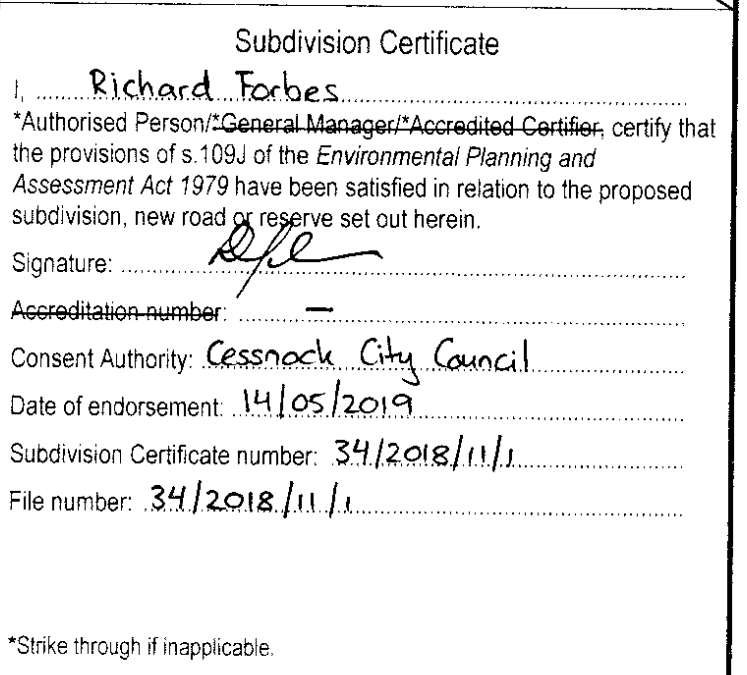 Subdivision Certificate
I, Richard Forbes
*Authorised Person/*General Manager/*Accredited Certifier, certify that
the provisions of s.109J of the Environmental Planning and
Assessment Act 1979 have been satisfied in relation to the proposed
subdivision, new road or reserve set out herein.
Signature:
Accreditation number: –
Consent Authority: Cessnock City Council
Date of endorsement: 14/05/2019
Subdivision Certificate number: 34/2018/11/1
File number: 34/2018/11/1
*Strike through if inapplicable.